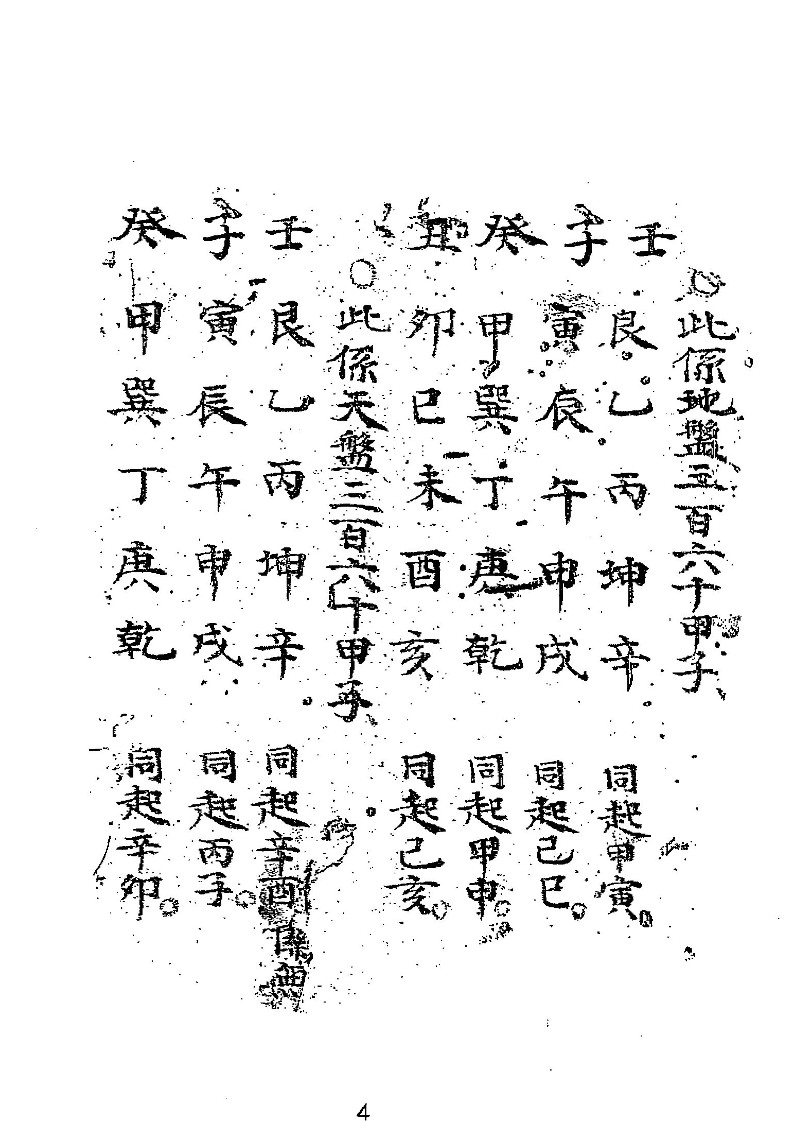 ○此係地盤三百六十甲子
壬艮乙丙坤辛 同起甲寅。
子寅辰午申戌 同起己巳。
癸甲巽丁庚乾 同起甲申。
丑卯巳未酉亥 同起己亥。
○此係天盤三百六十甲子
壬艮乙丙坤辛 同起辛酉係
子寅辰午申戌 同起丙子。
癸甲巽丁庚乾 同起辛卯。
4